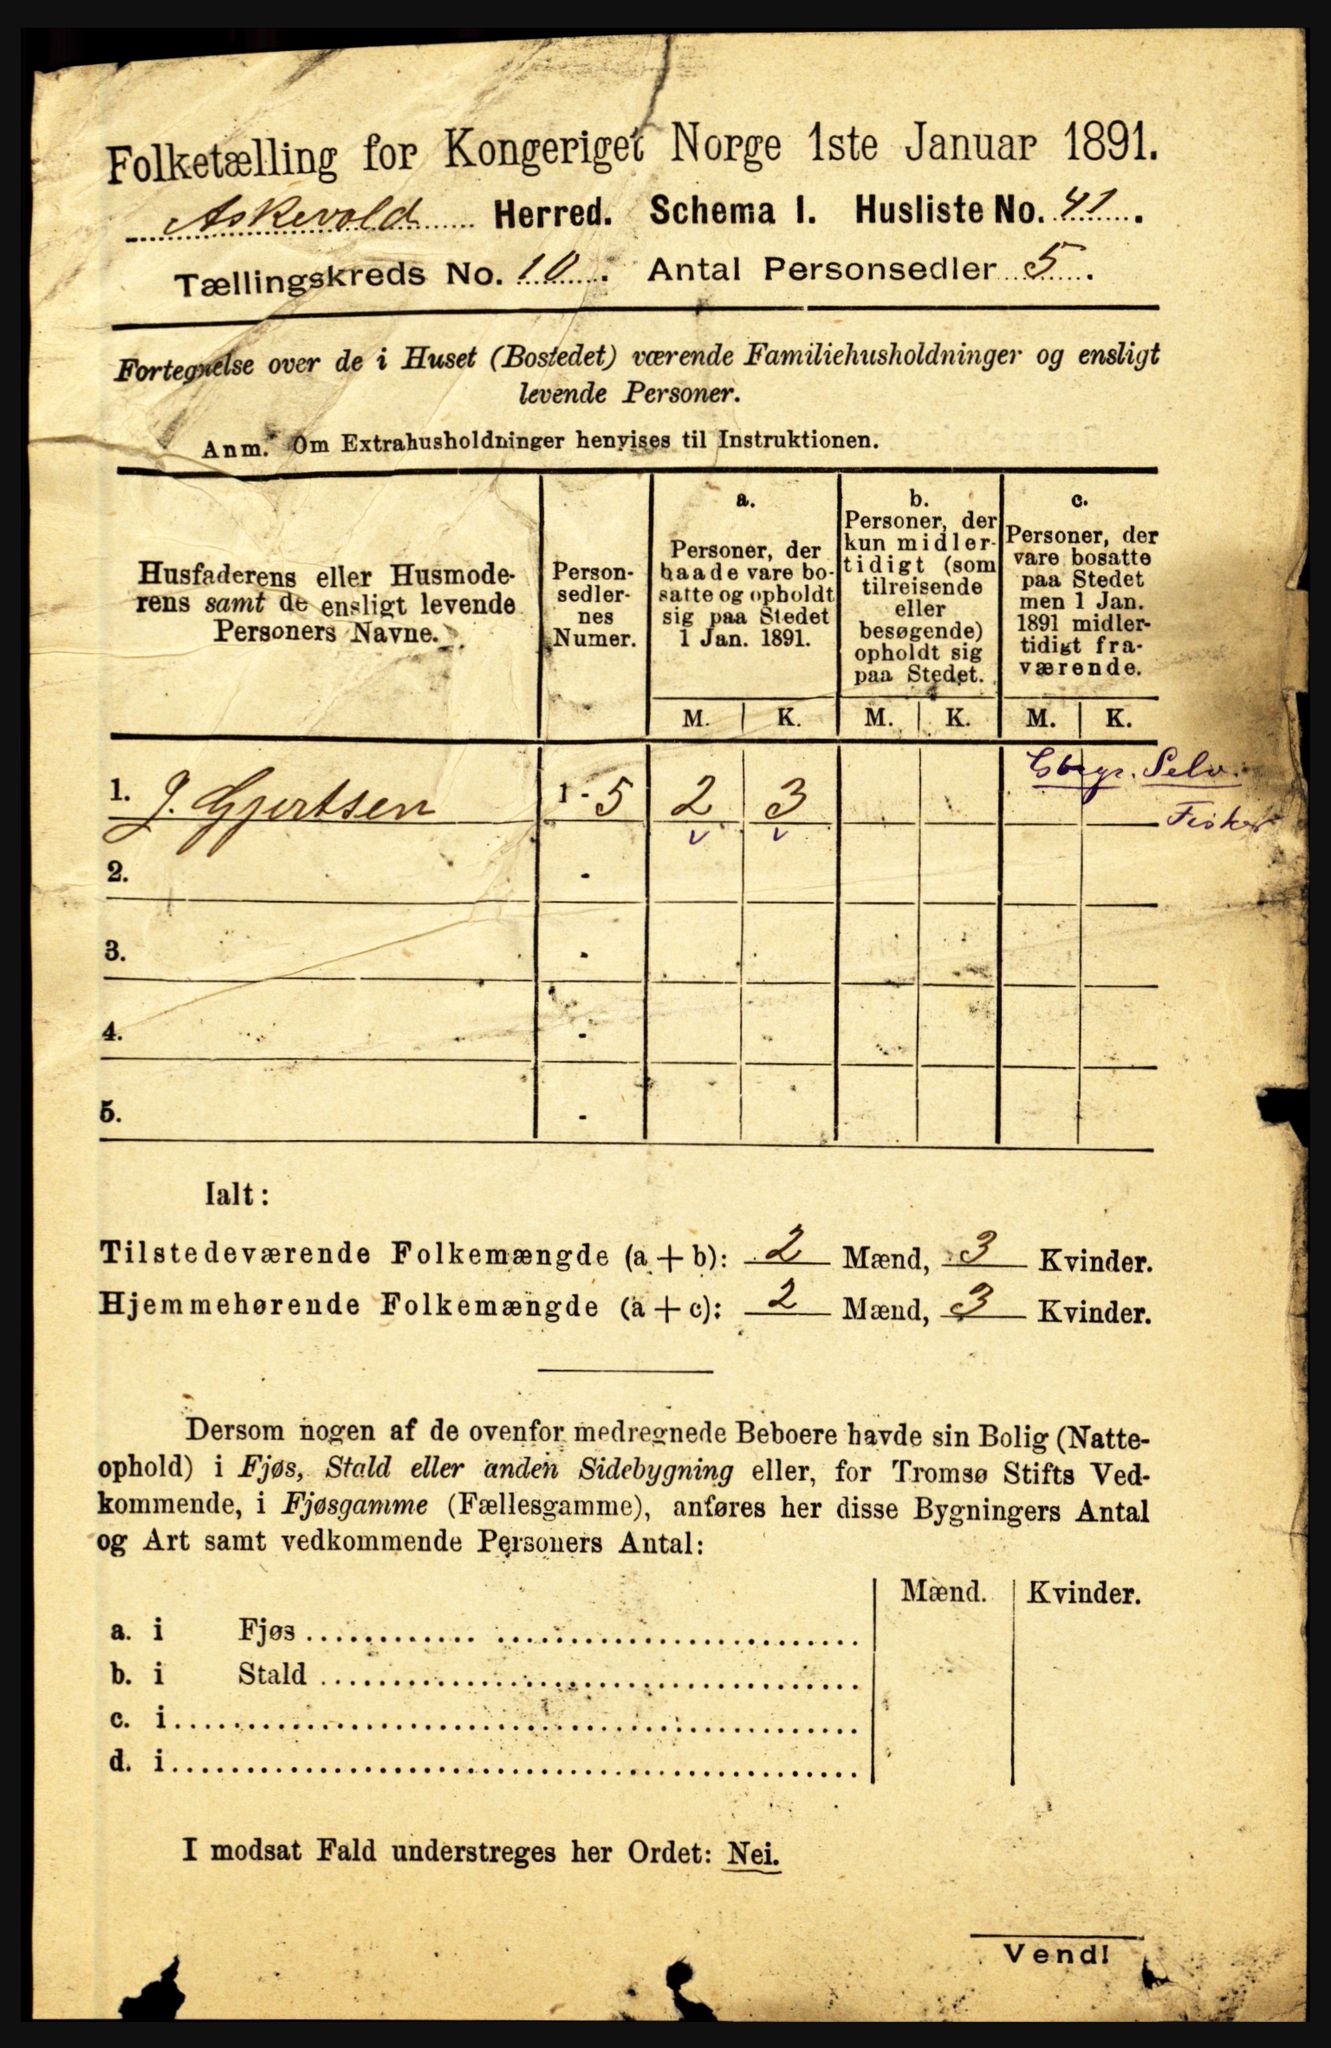 Folketælling for Kongeriget Norge 1ste Januar 1891.
Askevold Herred. Schema I. Husliste No. 41.
Tællingskreds No. 10. Antal Personsedler 5.
Fortegnelse over de i Huset (Bostedet) værende Familiehusholdninger og ensligt
levende Personer.
Anm. Om Extrahusholdninger henvises til Instruktionen.
Husfaderens eller Husmode-
rens samt de ensligt levende
Personers Navne.
Person-
sedler-
nes
Numer.
a.
Personer, der
baade vare bo-
satte og opholdt
sig paa Stedet
1 Jan. 1891.
b.
Personer, der
kun midler-
tidigt (som
tilreisende
eller
besøgende)
opholdt sig
paa Stedet.
c.
Personer, der
vare bosatte
paa Stedet
men 1 Jan.
1891 midler-
tidigt fra-
værende.
M. K. M. K. M. K.
1. J. Gjertsen 1 - 5 2 3
Gbrgr. Selv.
Fisker
2. -
3. -
4. -
5. -
Ialt:
Tilstedeværende Folkemængde (a + b): 2 Mænd, 3 Kvinder.
Hjemmehørende Folkemængde (a + c): 2 Mænd, 3 Kvinder.
Dersom nogen af de ovenfor medregnede Beboere havde sin Bolig (Natte-
ophold) i Fjøs, Stald eller anden Sidebygning eller, for Tromsø Stifts Ved-
kommende, i Fjøsgamme (Fællesgamme), anføres her disse Bygningers Antal
og Art samt vedkommende Personers Antal:
Mænd. Kvinder.
a. i Fjøs
b. i Stald
c. i
d. i
I modsat Fald understreges her Ordet: Nei.
Vend!